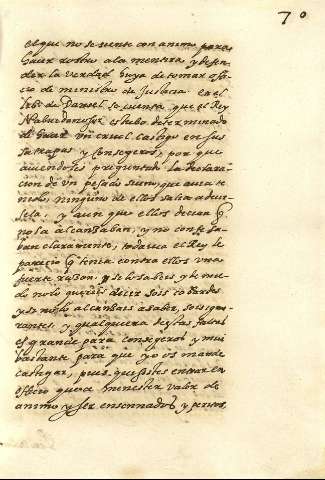 70
el que no se siente con animo para
hacer rostro a la mentira y defen
der la verdad huya de tomar ofi
cio de ministro de Justicia. En el
libro de Daniel se cuenta que el Rey
Nabucdonosor estubo determinado
de hacer un cruel castigo en sus
satrapas y consegeros, por que
auiendoles preguntado la declara
cion de un pesado sueño, que auia te
nido, ninguno de ellos salia a dar
sela, y aun que ellos decian q
no la alcanzaban, y no confesa
ban claramente, todavia el Rey le
parecio q tenia contra ellos una
fuerte razon. y se lo sabeis y de mie
do no lo quereis decir sois cobardes
y si no lo alcanzais a saber, sois igno
rantes, y qualquiera destas faltas
es grande para consegeros y muy
bastante para que yo os mande
castigar, pues quesistes entrar en
oficio que a menester valor de
animo y ser ensennados y peritos